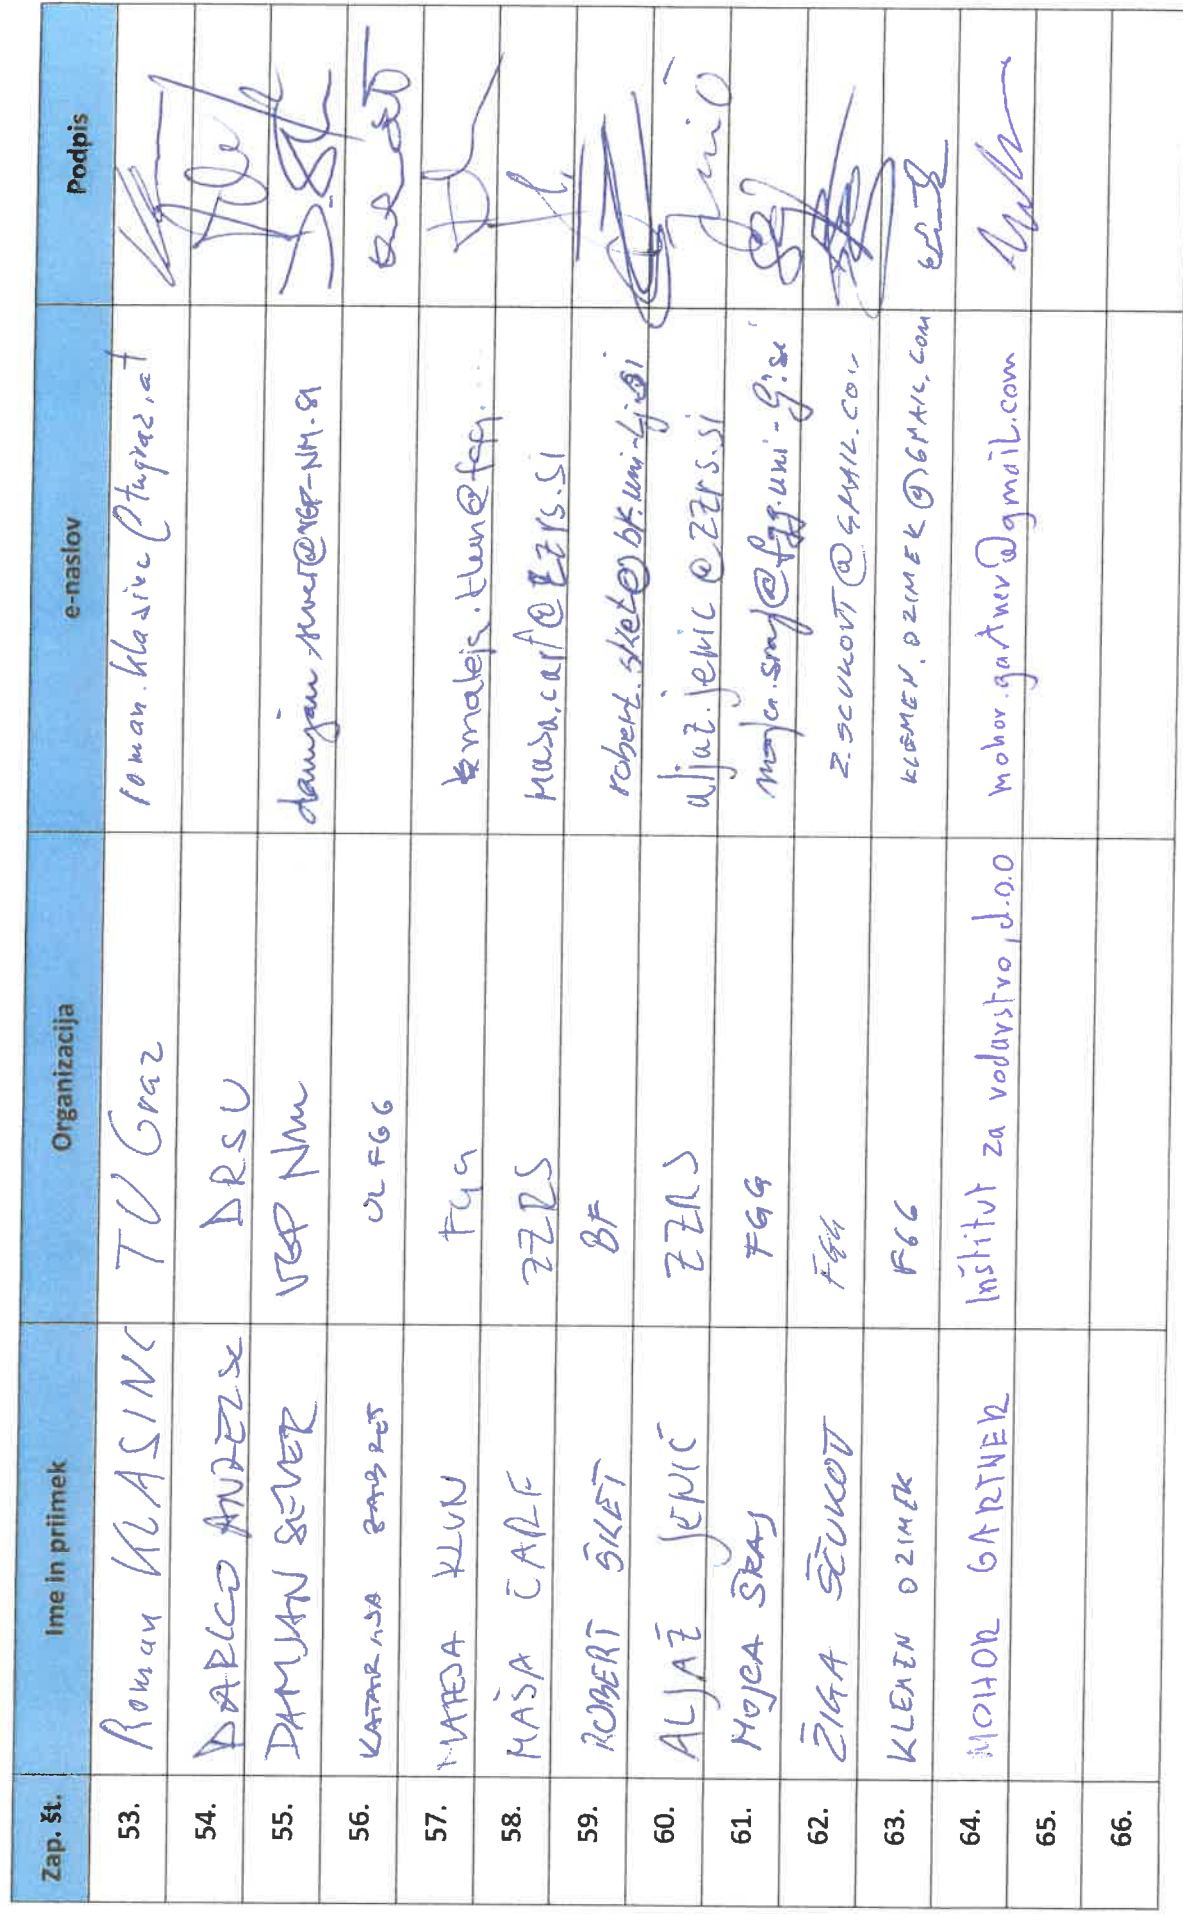 Zap. št. Ime in priimek Organizacija e-naslov Podpis
53. Roman KLASINC TU Graz roman.klasinc@tugraz.at
54. DARKO ANZELC DRSV
55. DAMJAN SEVER VGP NM damjan.sever@VGP-NM.SI
56. KATARINA ZABRET UL FGG
57. MATEJA KLUN FGG mateja.klun@fgg.
58. MAŠA ČARF ZZRS masa.carf@zzrs.si
59. ROBERT ŠKET BF robert.sket@bf.uni-lj.si
60. ALJAŽ JENIČ ZZRS aljaz.jenic@zzrs.si
61. MOJCA ŠRAJ FGG mojca.sraj@fgg.uni-lj.si
62. ŽIGA ŠČUKOVT FGG Z.SCUKOVT@GMAIL.COM
63. KLEMEN OZIMEK FGG KLEMEN.OZIMEK@GMAIL.COM
64. MOHOR GARTNER Inštitut za vodarstvo, d.o.o mohor.gartner@gmail.com
65.
66.